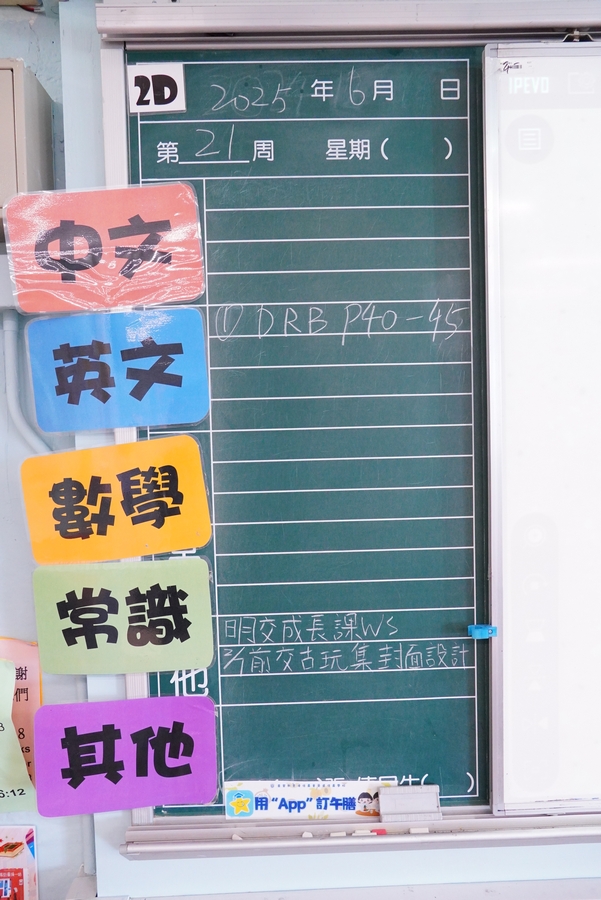 2D
2025 年 6 月 日
第 21 周 星期( )
中文
① DRB P40-45
英文
數學
常識
明交成長課WS
前交古玩集封面設計
他
其他
用“App”訂午膳
IPEVO
謝
們
8
6:12